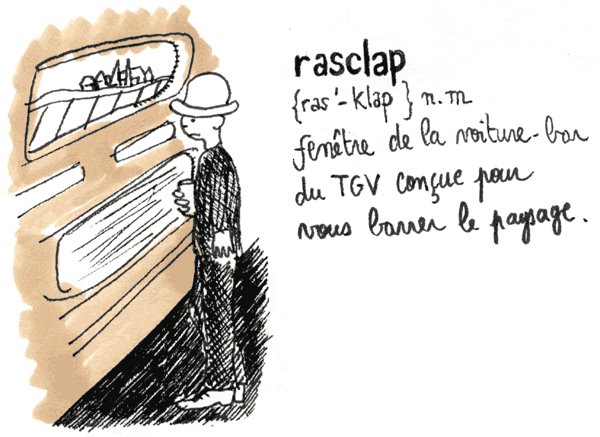 rasclap
{ras'-klap} n.m
fenêtre de la voiture-bar
du TGV conçue pour
vous barrer le paysage.